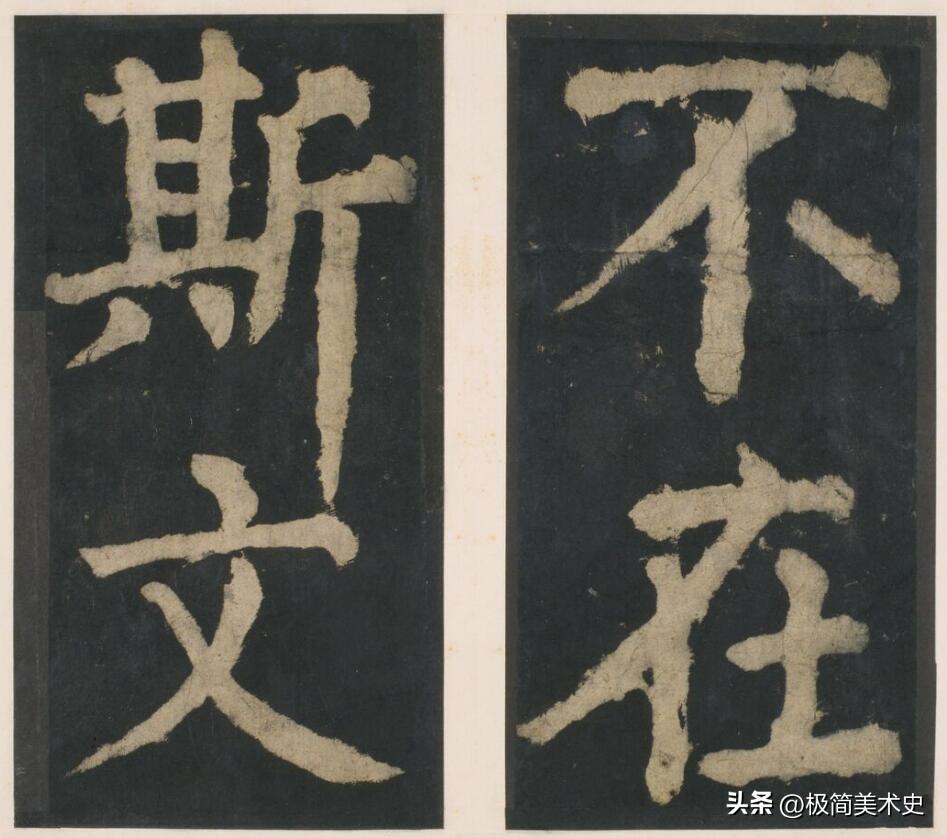 不在
斯文
头条 @极简美术史